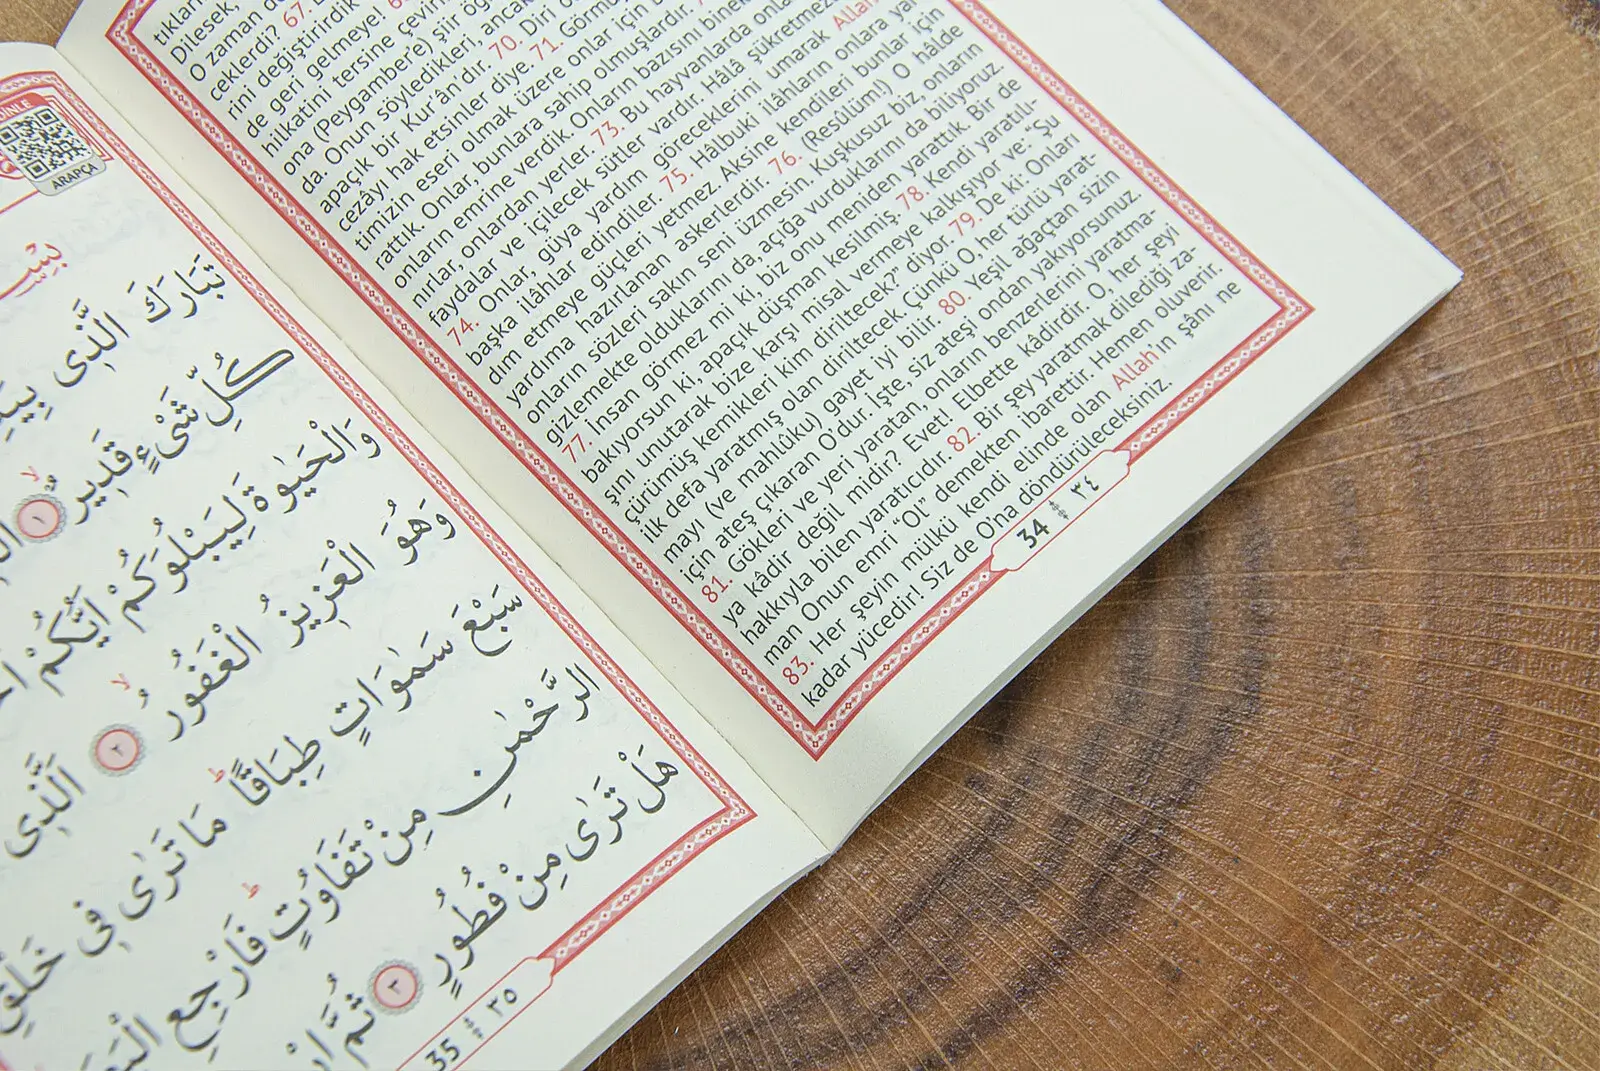 tıkların
Dilesek,
O zaman
ceklerdi? 67.
rini değiştirdik
de geri gelmeye!
hilkatini tersine çevir
ona (Peygamber'e) şiir öğ
da. Onun söyledikleri, ancak
apaçık bir Kur'ân'dır. 70. Diri
cezâyı hak etsinler diye. 71. Görm
timizin eseri olmak üzere onlar için
rattık. Onlar, bunlara sahip olmuşlardır.
onların emrine verdik. Onların bazısını binek
nırlar, onlardan yerler. 73. Bu hayvanlarda onla
faydalar ve içilecek sütler vardır. Hâlâ şükretmeze
74. Onlar, güya yardım göreceklerini umarak Allah
başka ilâhlar edindiler. 75. Hâlbuki ilâhların onlara yar
dım etmeye güçleri yetmez. Aksine kendileri bunlar için
yardıma hazırlanan askerlerdir. 76. (Resûlüm!) O hâlde
onların sözleri sakın seni üzmesin. Kuşkusuz biz, onların
gizlemekte olduklarını da, açığa vurduklarını da biliyoruz.
77. İnsan görmez mi ki, biz onu meniden yarattık. Bir de
bakıyorsun ki, apaçık düşman kesilmiş. 78. Kendi yaratılı-
şını unutarak bize karşı misal vermeye kalkışıyor ve: “Şu
çürümüş kemikleri kim diriltecek?” diyor. 79. De ki: Onları
ilk defa yaratmış olan diriltecek. Çünkü O, her türlü yarat-
mayı (ve mahlûku) gayet iyi bilir. 80. Yeşil ağaçtan sizin
için ateş çıkaran O'dur. İşte, siz ateşi ondan yakıyorsunuz.
81. Gökleri ve yeri yaratan, onların benzerlerini yaratma-
ya kâdir değil midir? Evet! Elbette kâdirdir. O, her şeyi
hakkıyla bilen yaratıcıdır. 82. Bir şey yaratmak dilediği za-
man Onun emri “Ol” demekten ibarettir. Hemen oluverir.
83. Her şeyin mülkü kendi elinde olan Allah'ın şânı ne
kadar yücedir! Siz de O'na döndürüleceksiniz.
34 ٣٤
DİNLE
ARAPÇA
بِسْ
تَبَارَكَ الَّذ۪ى بِيَدِ
كُلِّ شَىْءٍ قَد۪يرٌۙ ١
وَالْحَيٰوةَ لِيَبْلُوَكُمْ اَيُّكُمْ
وَهُوَ الْعَز۪يزُ الْغَفُورُۙ ٢ اَلَّذ۪ى
سَبْعَ سَمٰوَاتٍ طِبَاقًاۜ مَا تَرٰى ف۪ى خَلْقِ
الرَّحْمٰنِ مِنْ تَفَاوُتٍۜ فَارْجِعِ
هَلْ تَرٰى مِنْ فُطُورٍ ٣ ثُمَّ
35 ٣٥